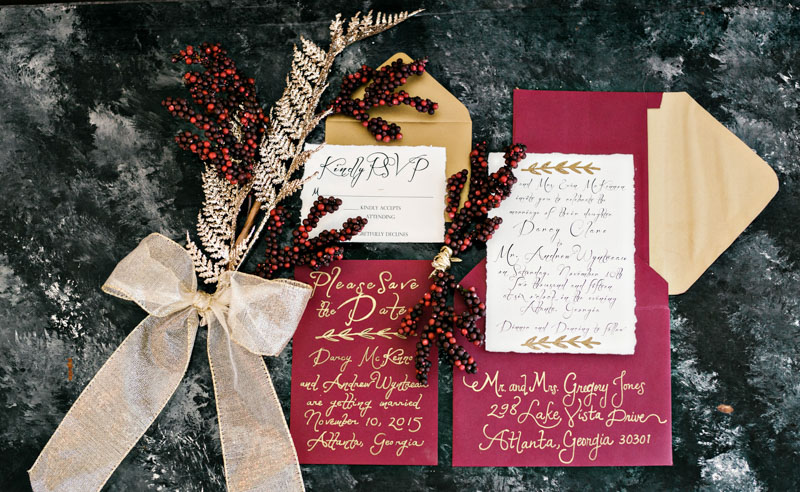 Kindly RSVP
M
KINDLY ACCEPTS
ATTENDING
RETFULLY DECLINES
and Mrs. Erin McKennon
invite you to celebrate the
marriage of their daughter
Darcy Clare
to
Mr. Andrew Wyntzeau
on Saturday, November 10th
two thousand and fifteen
at six o'clock in the evening
Atlanta, Georgia
Dinner and Dancing to follow
Please Save
the Date
Darcy McKenno
and Andrew Wyntzeau
are getting married
November 10, 2015
Atlanta, Georgia
Mr. and Mrs. Gregory Jones
298 Lake Vista Drive
Atlanta, Georgia 30301